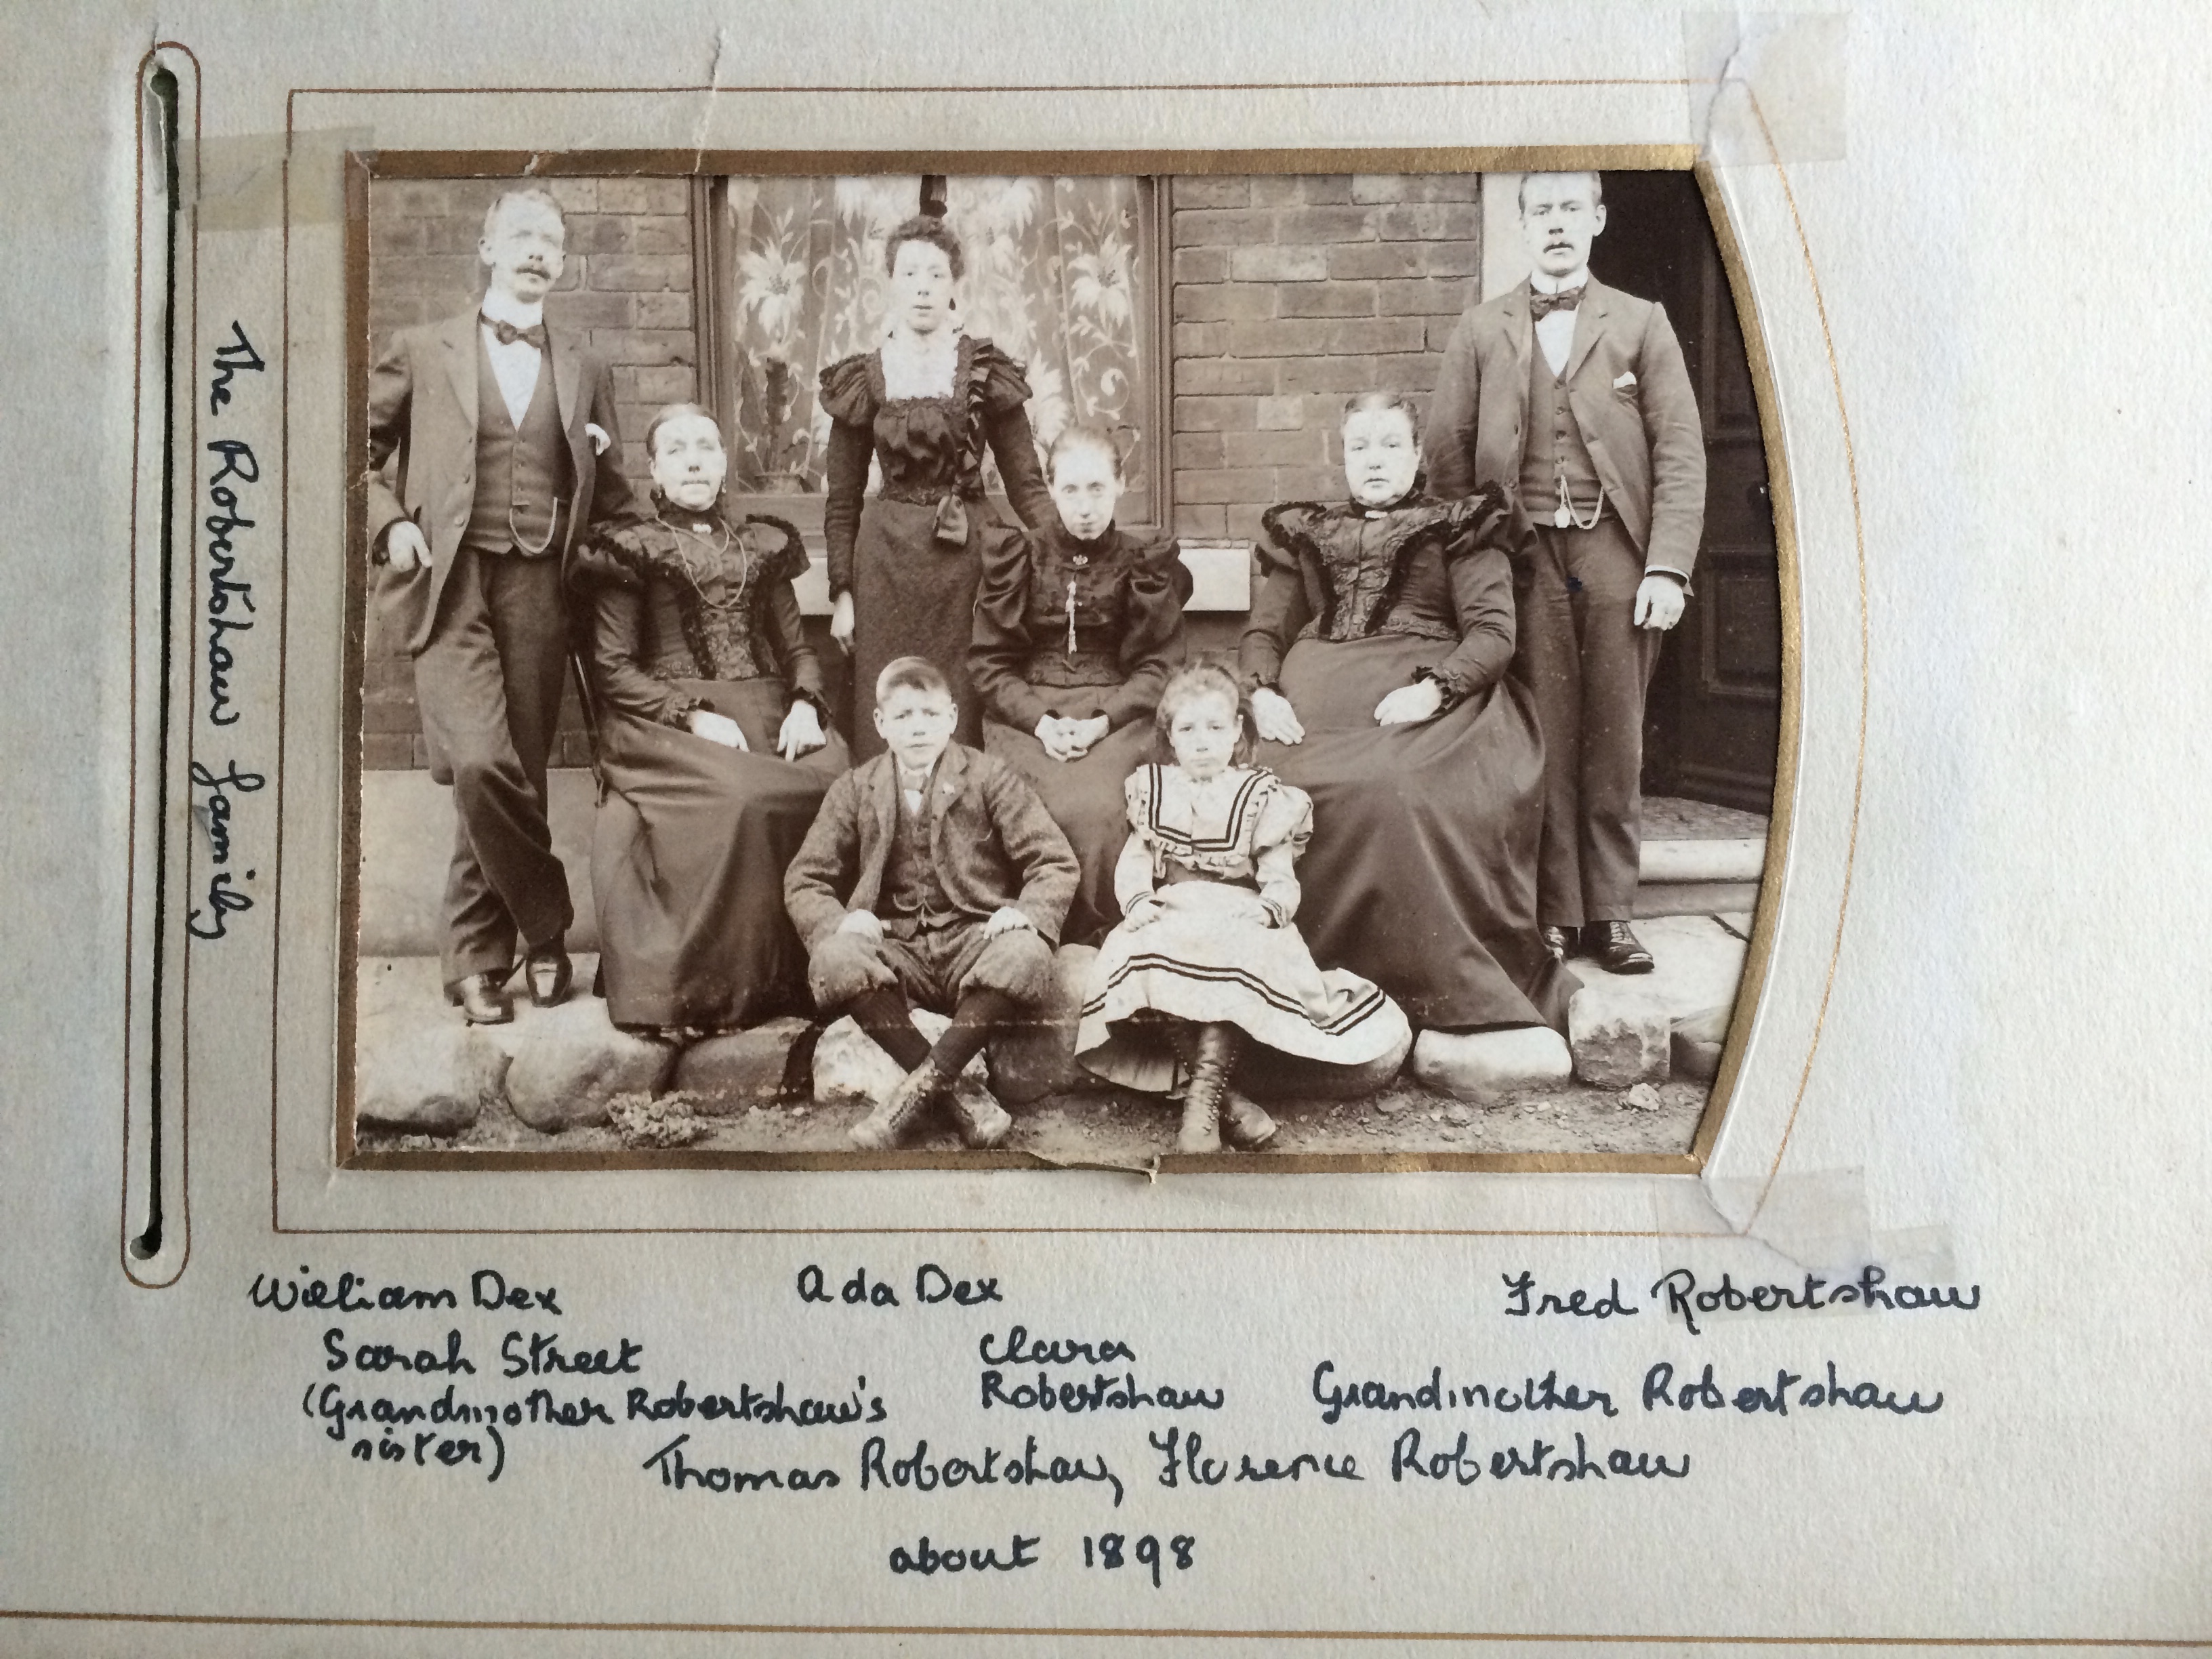 The Robertshaw family
William Dex Ada Dex Fred Robertshaw
Sarah Street Clara
(Grandmother Robertshaw's Robertshaw Grandmother Robertshaw
sister)
Thomas Robertshaw, Florence Robertshaw
about 1898